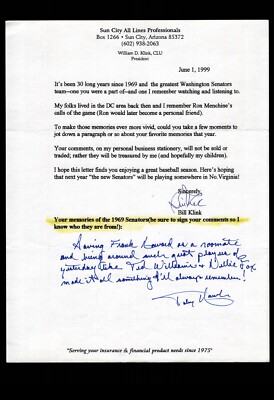 Sun City All Lines Professionals
Box 1266 • Sun City, Arizona 85372
(602) 938-2063
William D. Klink, CLU
President
June 1, 1999
It's been 30 long years since 1969 and the greatest Washington Senators
team--one you were a part of--and one I remember watching and listening to.
My folks lived in the DC area back then and I remember Ron Menchine's
calls of the game (Ron would later become a personal friend).
To make those memories even more vivid, could you take a few moments to
jot down a paragraph or so about your favorite memories that year.
Your comments, on my personal business stationery, will not be sold or
traded; rather they will be treasured by me (and hopefully my children).
I hope this letter finds you enjoying a great baseball season. Here's hoping
that next year "the new Senators" will be playing somewhere in No.Virginia!
Sincerely,
Bill Klink
Your memories of the 1969 Senators(be sure to sign your comments so I
know who they are from!):
Having Frank Howard as a roomate
and being around such great players of
yesterday like Ted Williams & Nellie Fox
made it all something I'll always remember!
"Serving your insurance & financial product needs since 1975"